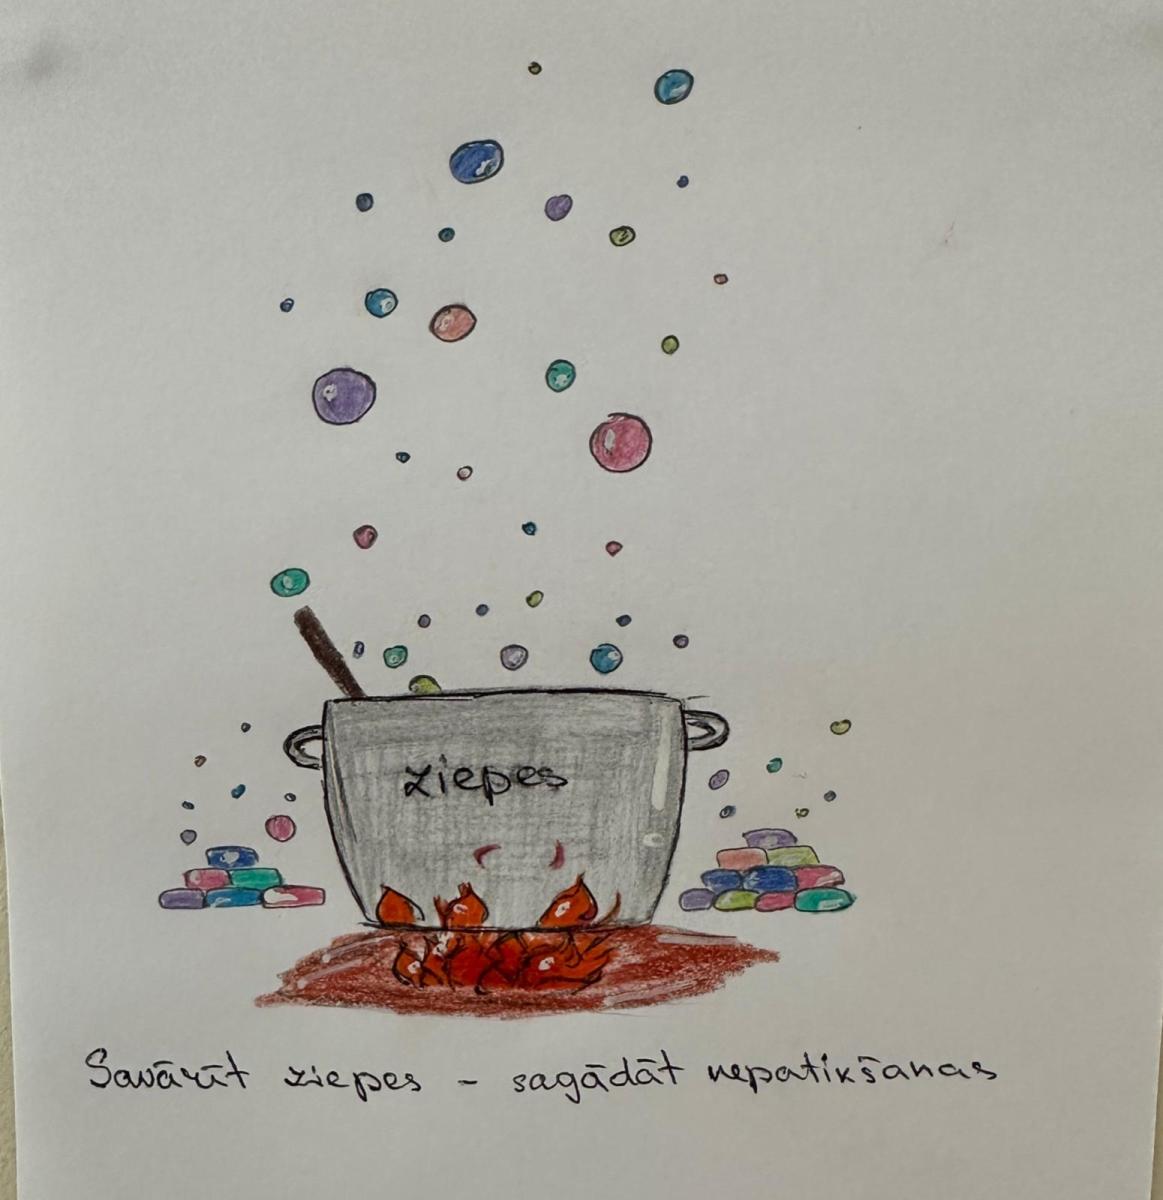 ziepes
Savārīt ziepes - sagādāt nepatikšanas